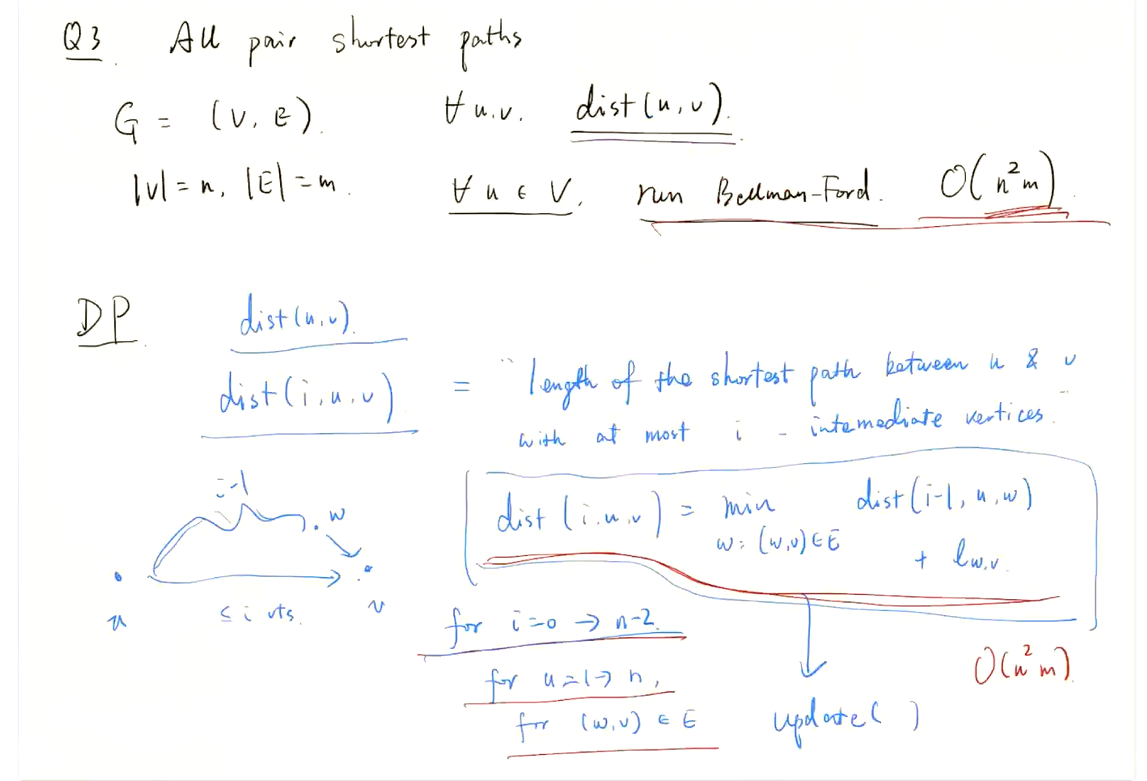 Q3. All pair shortest paths
G = (V, E). ∀ u.v. dist(u, v).
|V| = n, |E| = m. ∀ u ∈ V, run Bellman-Ford. O(n²m).
DP. dist(u,v).
dist(i,u,v) = "length of the shortest path between u & v
with at most i - intemediate vertices."
i-1
w
dist(i,u,v) = min dist(i-1, u, w)
w: (w,v) ∈ E + l_{w,v}
u ≤ i vts. v
for i=0 → n-2.
O(n²m).
for u=1→ n,
for (w,v) ∈ E update( )